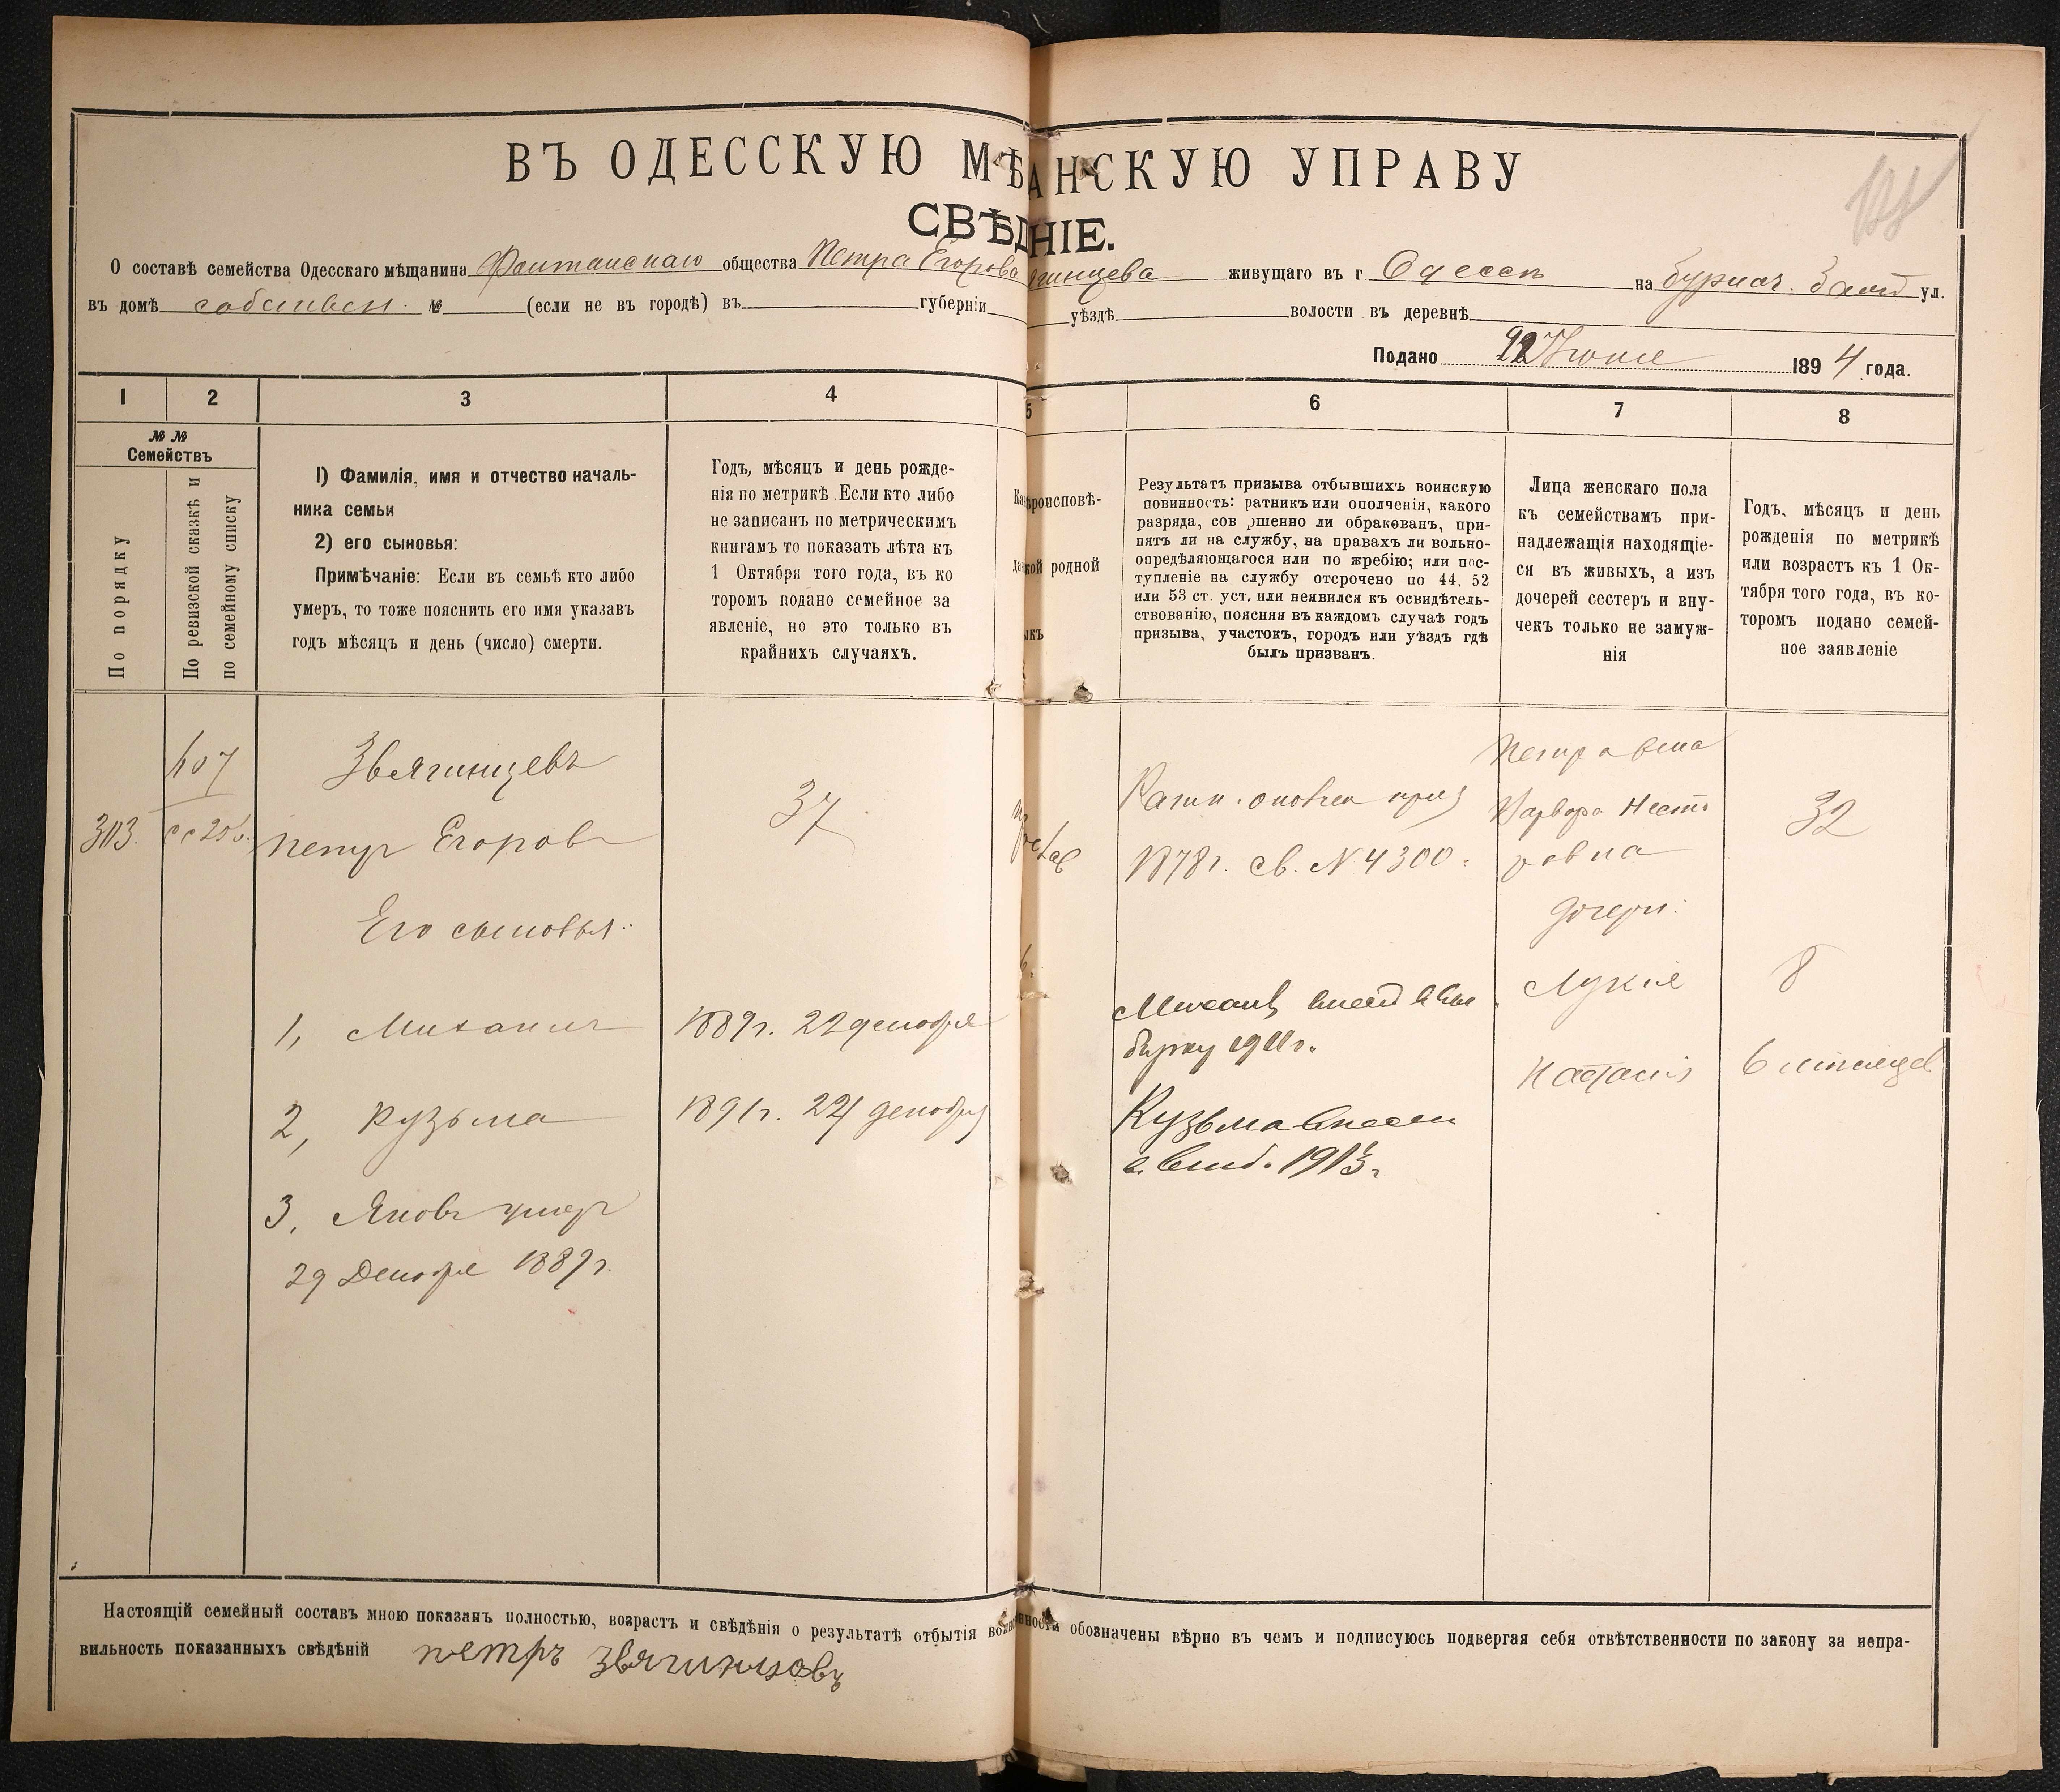 ВЪ ОДЕССКУЮ МѢ АНСКУЮ УПРАВУ
СВѢД НІЕ.
О составѣ семейства Одесскаго мѣщанина Фонтанскаго общества Петра Егорова гинцева живущаго въ г Одессѣ на ул.
въ домѣ собствен. № (если не въ городѣ) въ губерніи уѣздѣ волости въ деревнѣ
Подано 22 Іюня 1894 года.
1 2 3 4 5 6 7 8
№ №
Семействъ
По порядку
По ревизской сказкѣ и
по семейному списку
1) Фамилія, имя и отчество началь-
ника семьи
2) его сыновья:
Примѣчаніе: Если въ семьѣ кто либо
умеръ, то тоже пояснить его имя указавъ
годъ мѣсяцъ и день (число) смерти.
Годъ, мѣсяцъ и день рожде-
нія по метрикѣ Если кто либо
не записанъ по метрическимъ
книгамъ то показать лѣта къ
1 Октября того года, въ ко
торомъ подано семейное за
явленіе, но это только въ
крайнихъ случаяхъ.
роисповѣ-
кой родной
Результатъ призыва отбывшихъ воинскую
повинность: ратникъ или ополченія, какого
разряда, сов ршенно ли обракованъ, при-
нятъ ли на службу, на правахъ ли вольно-
опредѣляющагося или по жребію; или пос-
тупленіе на службу отсрочено по 44, 52
или 53 ст. уст. или неявился къ освидѣтель-
ствованію, поясняя въ каждомъ случаѣ годъ
призыва, участокъ, городъ или уѣздъ гдѣ
былъ призванъ.
Лица женскаго пола
къ семействамъ при-
надлежащія находящіе-
ся въ живыхъ, а изъ
дочерей сестеръ и вну-
чекъ только не замуж-
нія
Годъ, мѣсяцъ и день
рожденія по метрикѣ
или возрастъ къ 1 Ок-
тября того года, въ ко-
торомъ подано семей-
ное заявленіе
607
313.
Звягинцевъ
Петръ Егоровъ
37
Ратн. ополчен приз
1878 г. св. N 4300.
Петра жена
Варвара Несто
ровна
32
Его сыновья:
дочери:
1, Михаилъ
1889 г. 22 декабря
Михаилъ
1911 г.
Лукія
8
2, Кузьма
1891 г. 24 декабря
Кузьма внесен
1913 г.
Наталія
6 мѣсяцев
3, Яковъ умеръ
29 Декабря 1889 г.
Настоящій семейный составъ мною показанъ полностью, возрастъ и свѣдѣнія о результатѣ отбытія вои нности обозначены вѣрно въ чемъ и подписуюсь подвергая себя отвѣтственности по закону за непра-
вильность показанныхъ свѣдѣній петръ звягинцовъ